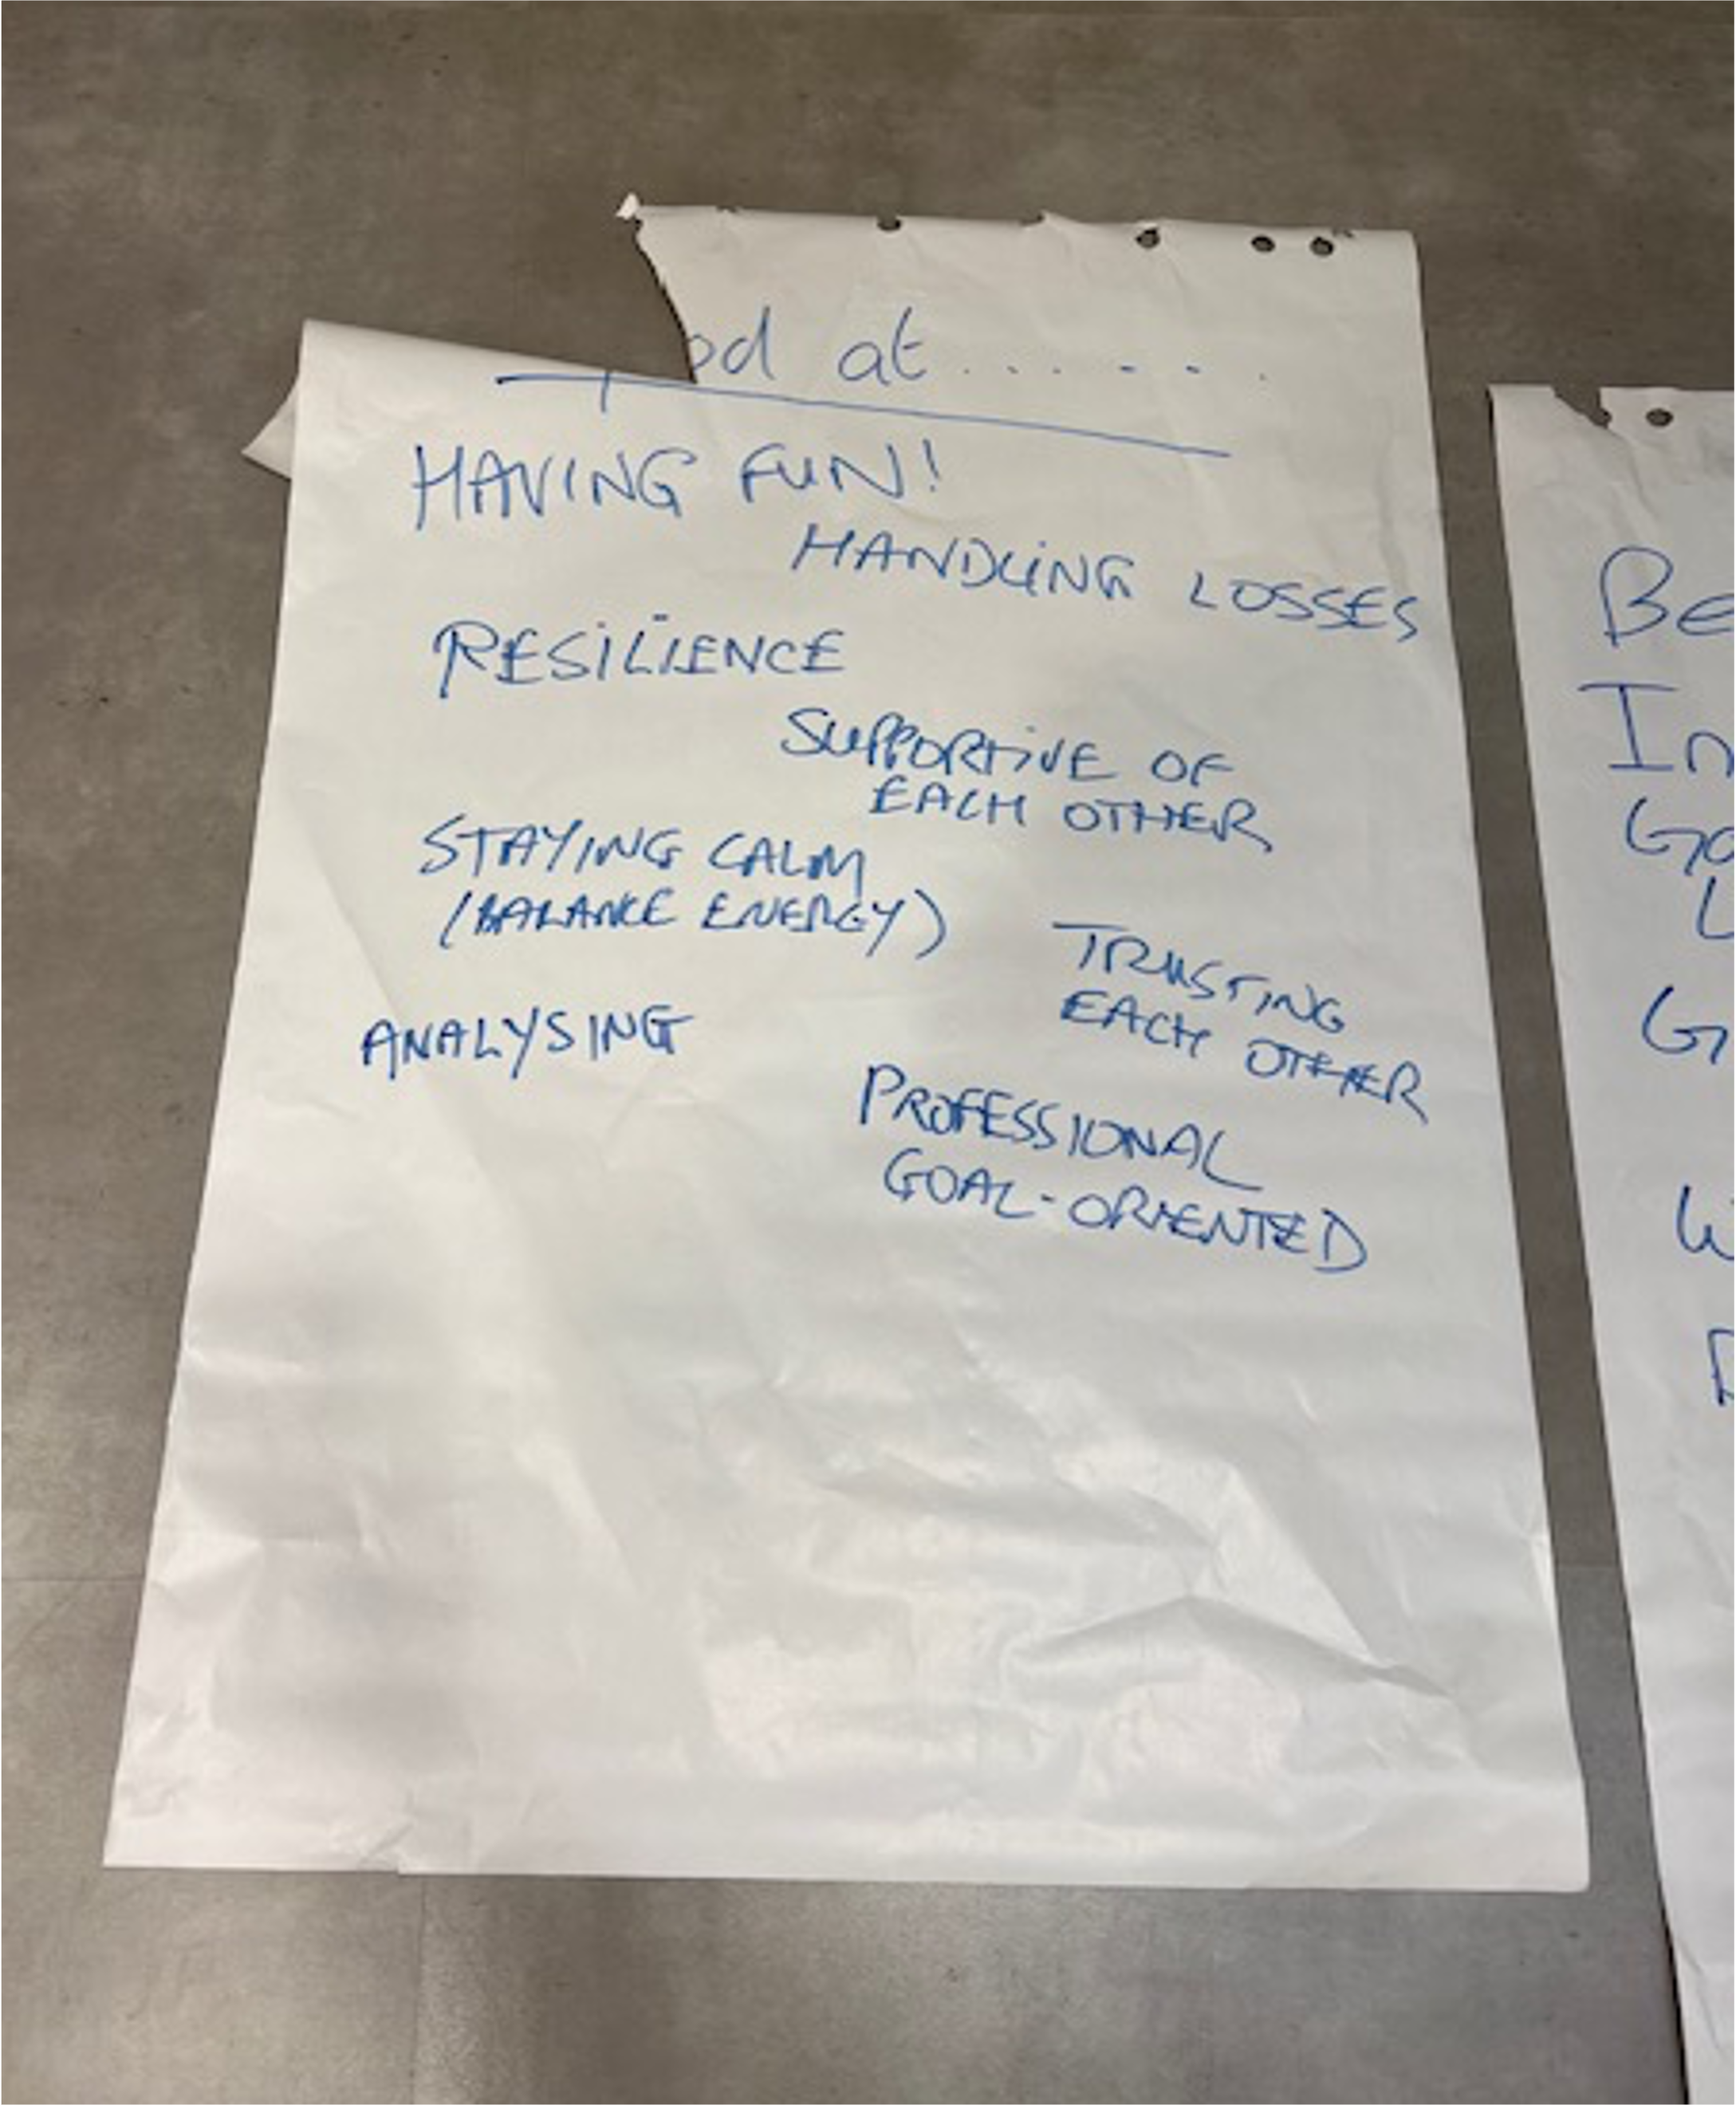 od at . . . . . .
HAVING FUN!
HANDLING LOSSES
RESILIENCE
SUPPORTIVE OF
EACH OTHER
STAYING CALM
(BALANCE ENERGY)
TRUSTING
EACH OTHER
ANALYSING
PROFESSIONAL
GOAL-ORIENTED
Be
In
Go
L
G
W